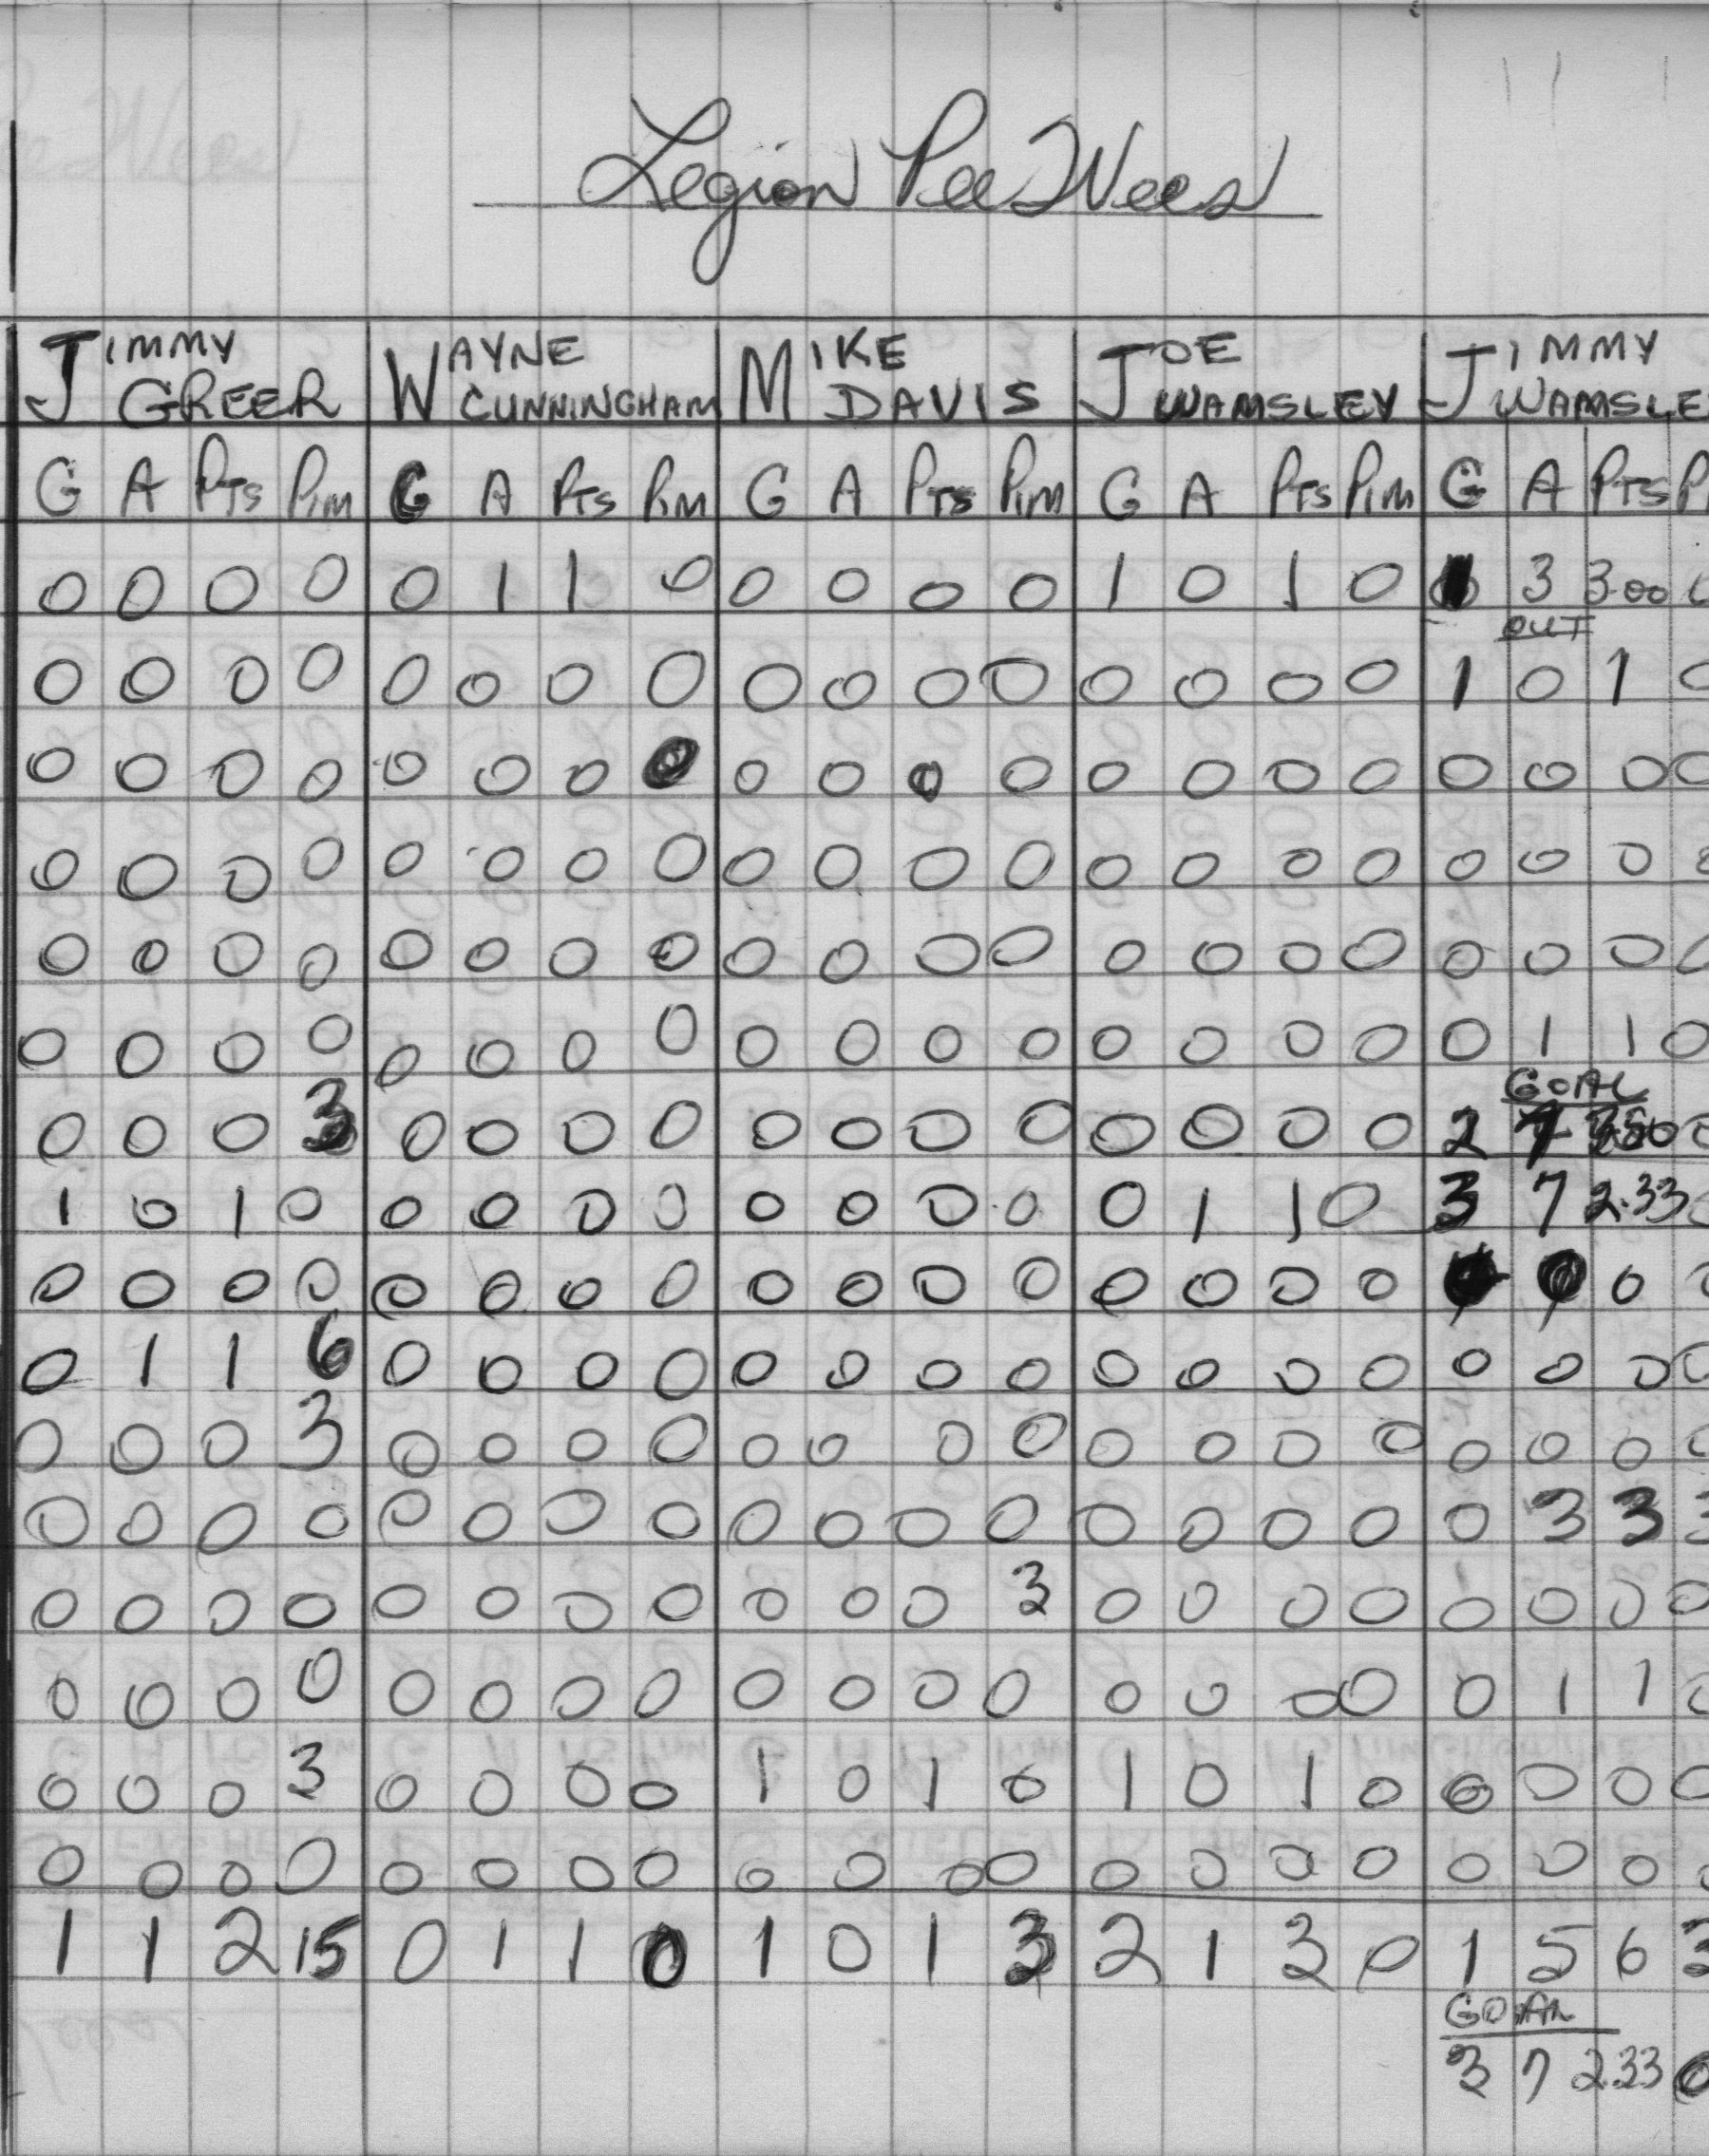 Legion PeeWees
JIMMY GREER WAYNE CUNNINGHAM MIKE DAVIS JOE WAMSLEY JIMMY WAMSLE
G A PTS PIM G A PTS PIM G A PTS PIM G A PTS PIM G A PTS P
0 0 0 0 0 1 1 0 0 0 0 0 1 0 1 0 1 3 3.00
OUT
0 0 0 0 0 0 0 0 0 0 0 0 0 0 0 0 1 0 1 0
0 0 0 0 0 0 0 0 0 0 0 0 0 0 0 0 0 0 0 0
0 0 0 0 0 0 0 0 0 0 0 0 0 0 0 0 0 0 0 0
0 0 0 0 0 0 0 0 0 0 0 0 0 0 0 0 0 0 0 0
0 0 0 0 0 0 0 0 0 0 0 0 0 0 0 0 0 1 1 0
GOAL
0 0 0 3 0 0 0 0 0 0 0 0 0 0 0 0 2 7 3.50 0
1 0 1 0 0 0 0 0 0 0 0 0 0 1 1 0 3 7 2.33 0
0 0 0 0 0 0 0 0 0 0 0 0 0 0 0 0 0 0 0 0
0 1 1 6 0 0 0 0 0 0 0 0 0 0 0 0 0 0 0 0
0 0 0 3 0 0 0 0 0 0 0 0 0 0 0 0 0 0 0 0
0 0 0 0 0 0 0 0 0 0 0 0 0 0 0 0 0 3 3 3
0 0 0 0 0 0 0 0 0 0 0 3 0 0 0 0 0 0 0 0
0 0 0 0 0 0 0 0 0 0 0 0 0 0 0 0 0 1 1 0
0 0 0 3 0 0 0 0 1 0 1 0 1 0 1 0 0 0 0 0
0 0 0 0 0 0 0 0 0 0 0 0 0 0 0 0 0 0 0 0
1 1 2 15 0 1 1 0 1 0 1 3 2 1 3 0 1 5 6 3
GOAL
3 7 2.33 0